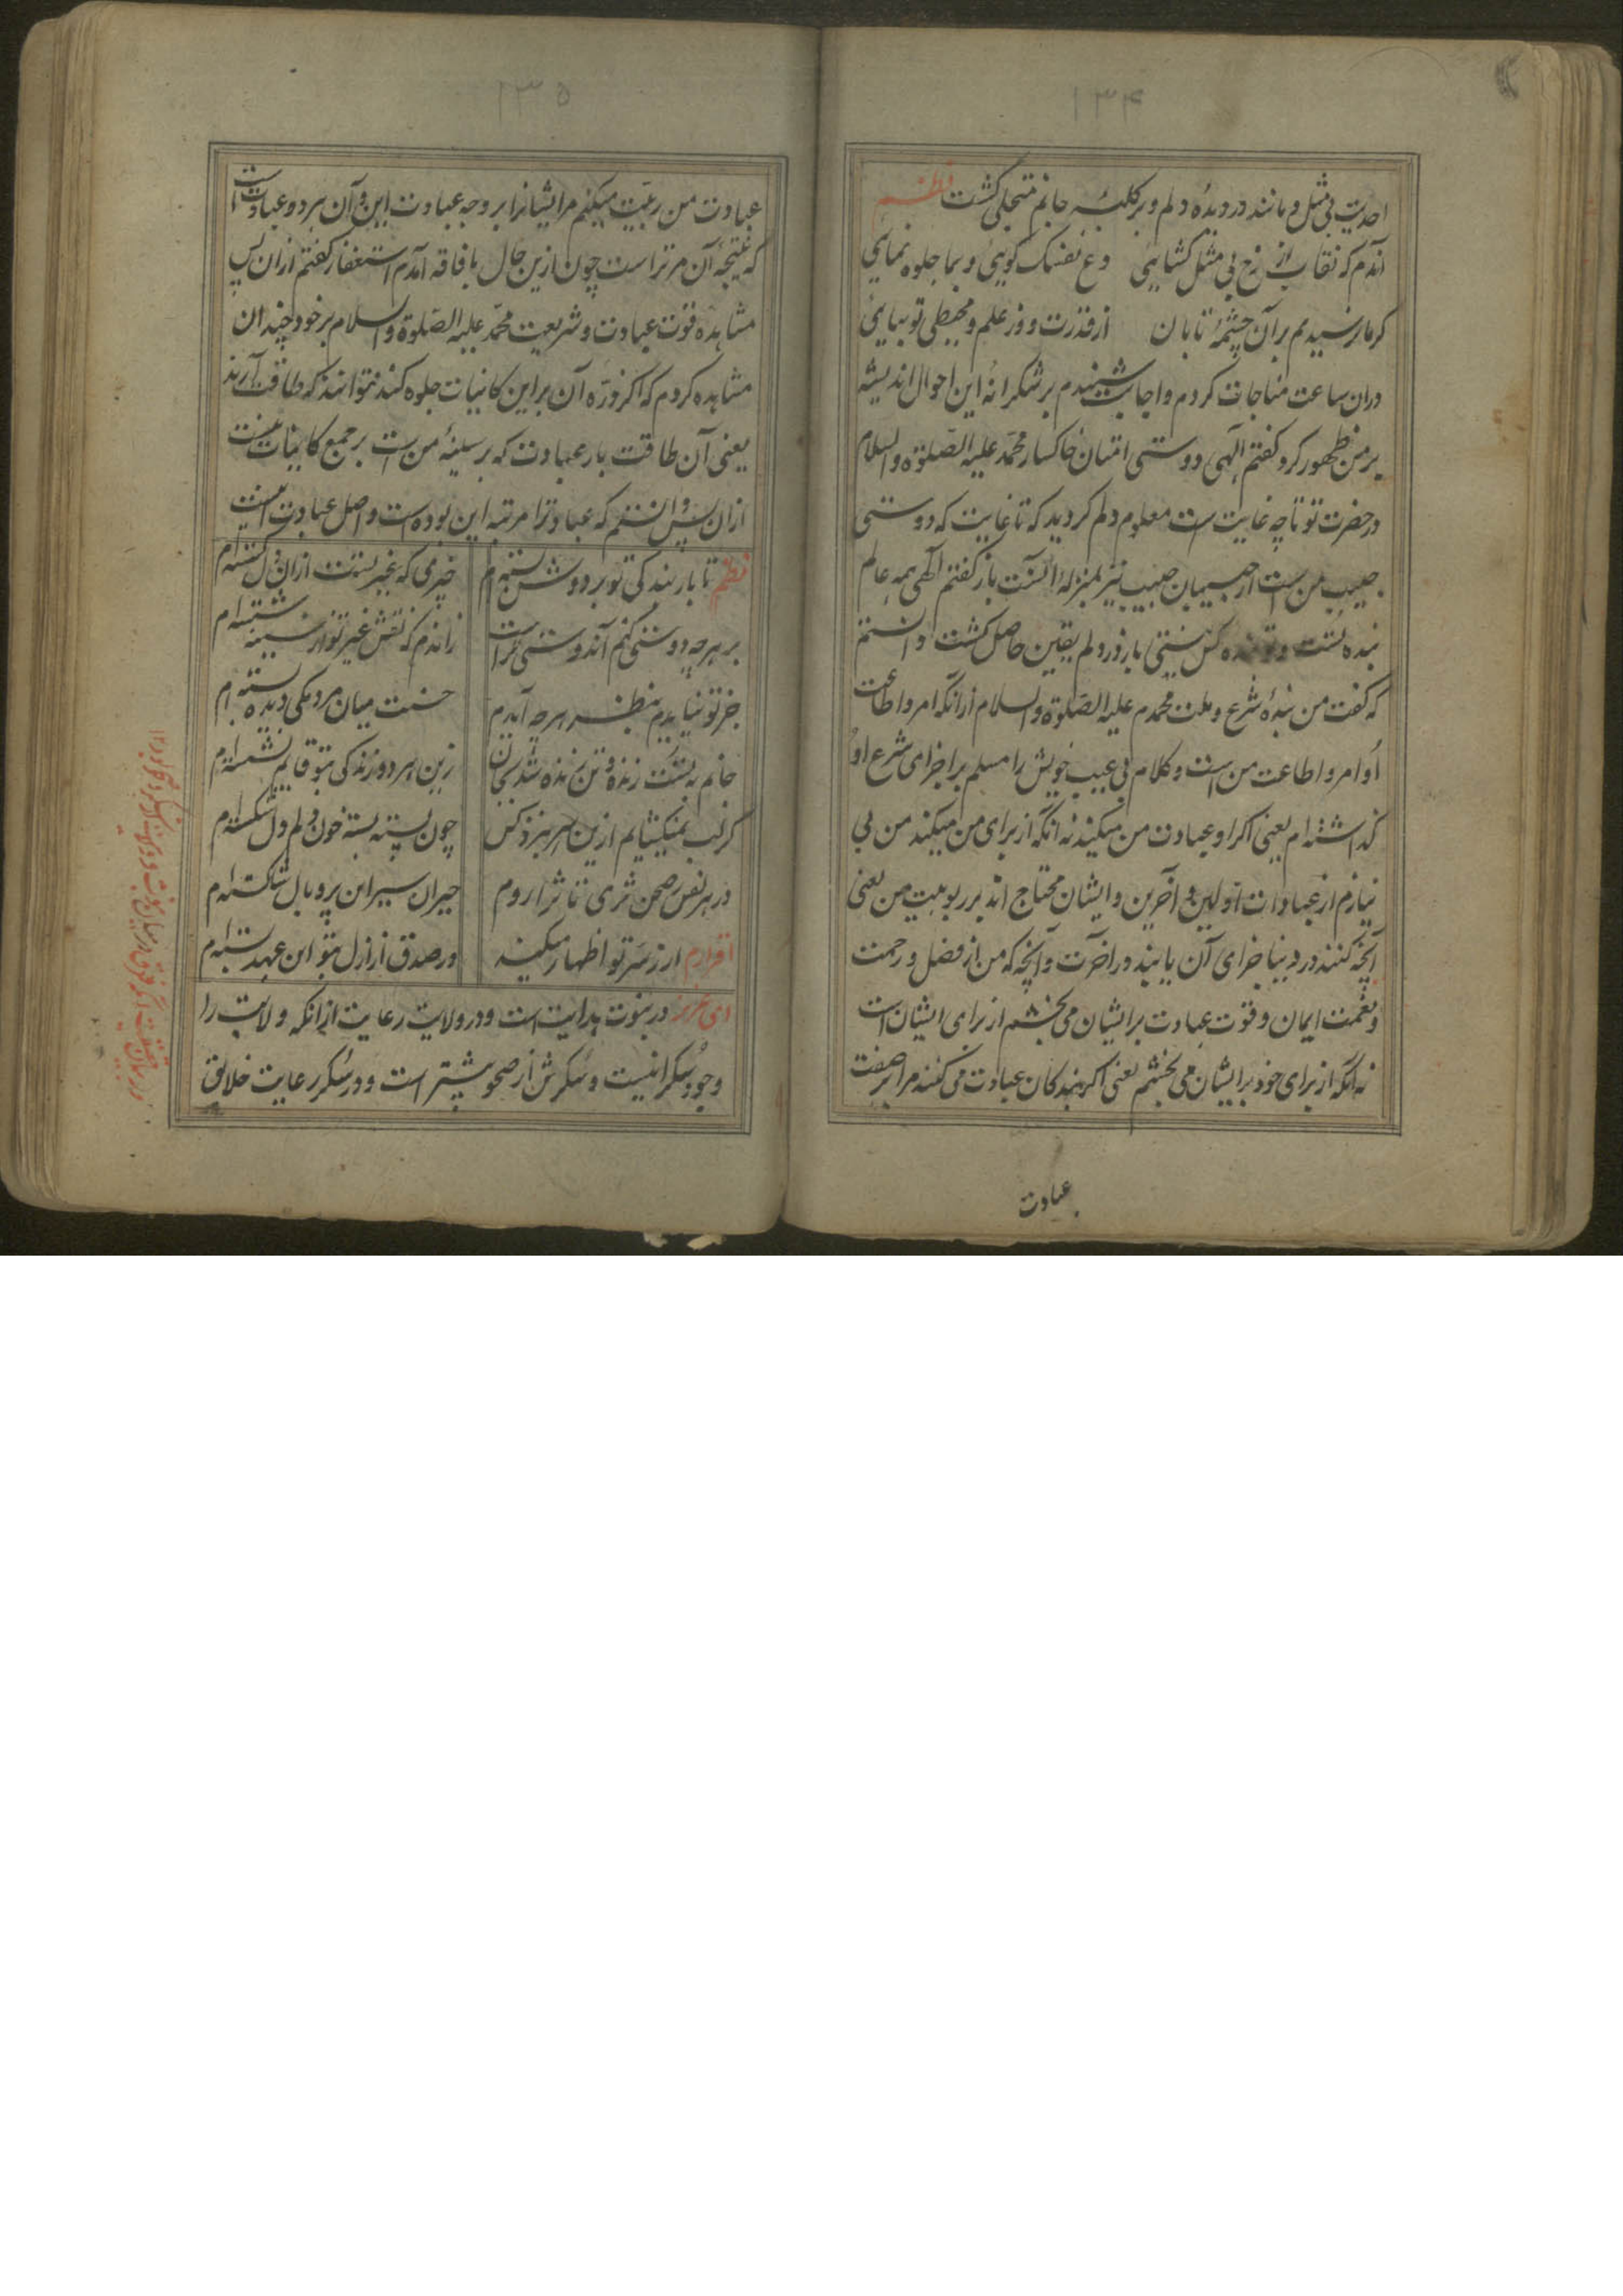 ۱۳۴
احدیت بی مثل و مانند در دیدهٔ دلم و بر کلبهٔ جانم متجلی کشت نظم
آندم که نقاب از رخ بی مثل کشایی دع نفسک کویی و بما جلوه نمایی
کر ما برسیدیم بر آن چشمهٔ تابان از قدرت و وز علم و محیطی تو بیایی
دران ساعت مناجات کردم و اجابت شنیدم بر شکرانهٔ این احوال اندیشه
بر من ظهور کرد کفتم الهی دوستی امتنان خاکسار محمد علیه الصلوة والسلام
در حضرت تو تا چه غایت است معلوم دلم کردید که تا غایت که دوستی
حبیب من است از حبیبان حبیب نیز بمنزلهٔ آنست باز کفتم الهی همه عالم
بنده تست و تو بنده کس نیستی باز در دلم یقین حاصل کشت دانستم
که کفت من بندهٔ شرع و ملت محمدم علیه الصلوة والسلام ازانکه امر و اطاعت
او امر و اطاعت من است و کلام بی عیب خویش را مسلم بر اجزای شرع او
کذاشته ام یعنی اکر او عبادت من میکند نه آنکه از برای من میکند من بی
نیازم از عبادات اولین و آخرین و ایشان محتاج اند بر ربوبیت من یعنی
آنچه کنند در دنیا جزای آن یابند در آخرت و آنچه که من از فضل و رحمت
و نعمت ایمان و قوت عبادت برایشان می بخشم از برای ایشان است
نه آنکه از برای خود برایشان می بخشم یعنی اکر بندکان عبادت می کنند مرا بر صفت
عبادت
۱۳۵
عبادت من ربیت میکنم مر ایشانرا بر وجه عبادت این و آن هر دو عبادت است
که نتیجهٔ آن مر تراست چون ازین حال با فاقه آمدم استغفار کفتم ازان پس
مشاهده قوت عبادت و شریعت محمد علیه الصلوة والسلام بر خود چندان
مشاهده کردم که اکر ذره آن بر این کاینات جلوه کند نتوانند که طاقت آرند
یعنی آن طاقت بار عبادت که بر سینهٔ من است بر جمع کاینات نیست
ازان پس دانستم که عبادت را مرتبه این بوده است و اصل عبادت اینست
نظم تا بار بندکی تو بر دوش بسته ام چیزمی که بجز تست ازان دل کسسته ام
بر هر چه دوستی کنم آن دوستی تراست زاندم که نقش غیر تو از سینه شسته ام
جز تو نیایدم بنظر هر چه آیدم حسنت میان مردمکی دیده بسته ام
جانم به تست زنده و تن زنده شد بجان زین هر دو زندکی بتو قایم نشسته ام
کر لب نمیکشایم ازین سر بنزد کس چون پسته بسته خون دلم و دل شکسته ام
در هر نفس ز صحن ثری تا ثرا روم حیران سیر این پر و بال شکسته ام
اقرارم ار ز سر تو اظهار میکند در صدق از ازل بتو این عهد بسته ام
ای عزیز در نبوت هدایت است و در ولایت رعایت ازانکه ولایت را
وجود سکرانیست و سکرش از صحو بیشتر است و در سکر رعایت خلایق